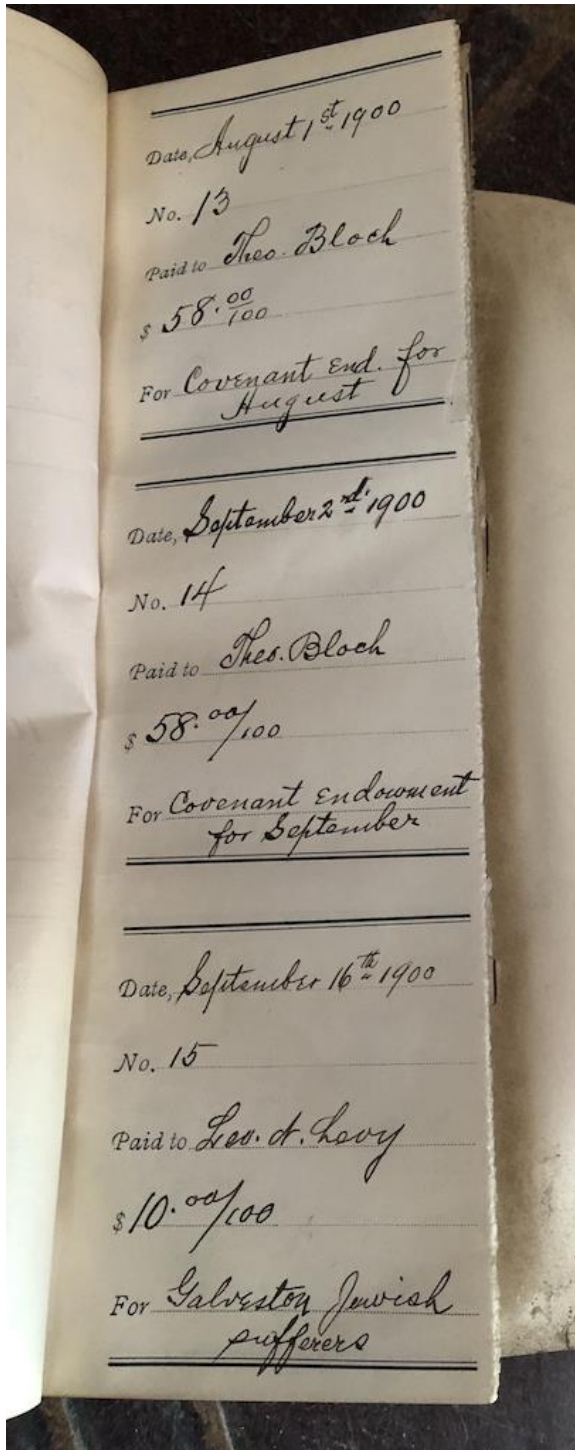 Date, August 1st 1900
No. 13
Paid to Theo. Bloch
$ 58.00/100
For Covenant End. for
August
Date, September 2nd 1900
No. 14
Paid to Theo. Bloch
$ 58.00/100
For Covenant Endowment
for September
Date, September 16th 1900
No. 15
Paid to Leo. N. Levy
$ 10.00/100
For Galveston Jewish
sufferers